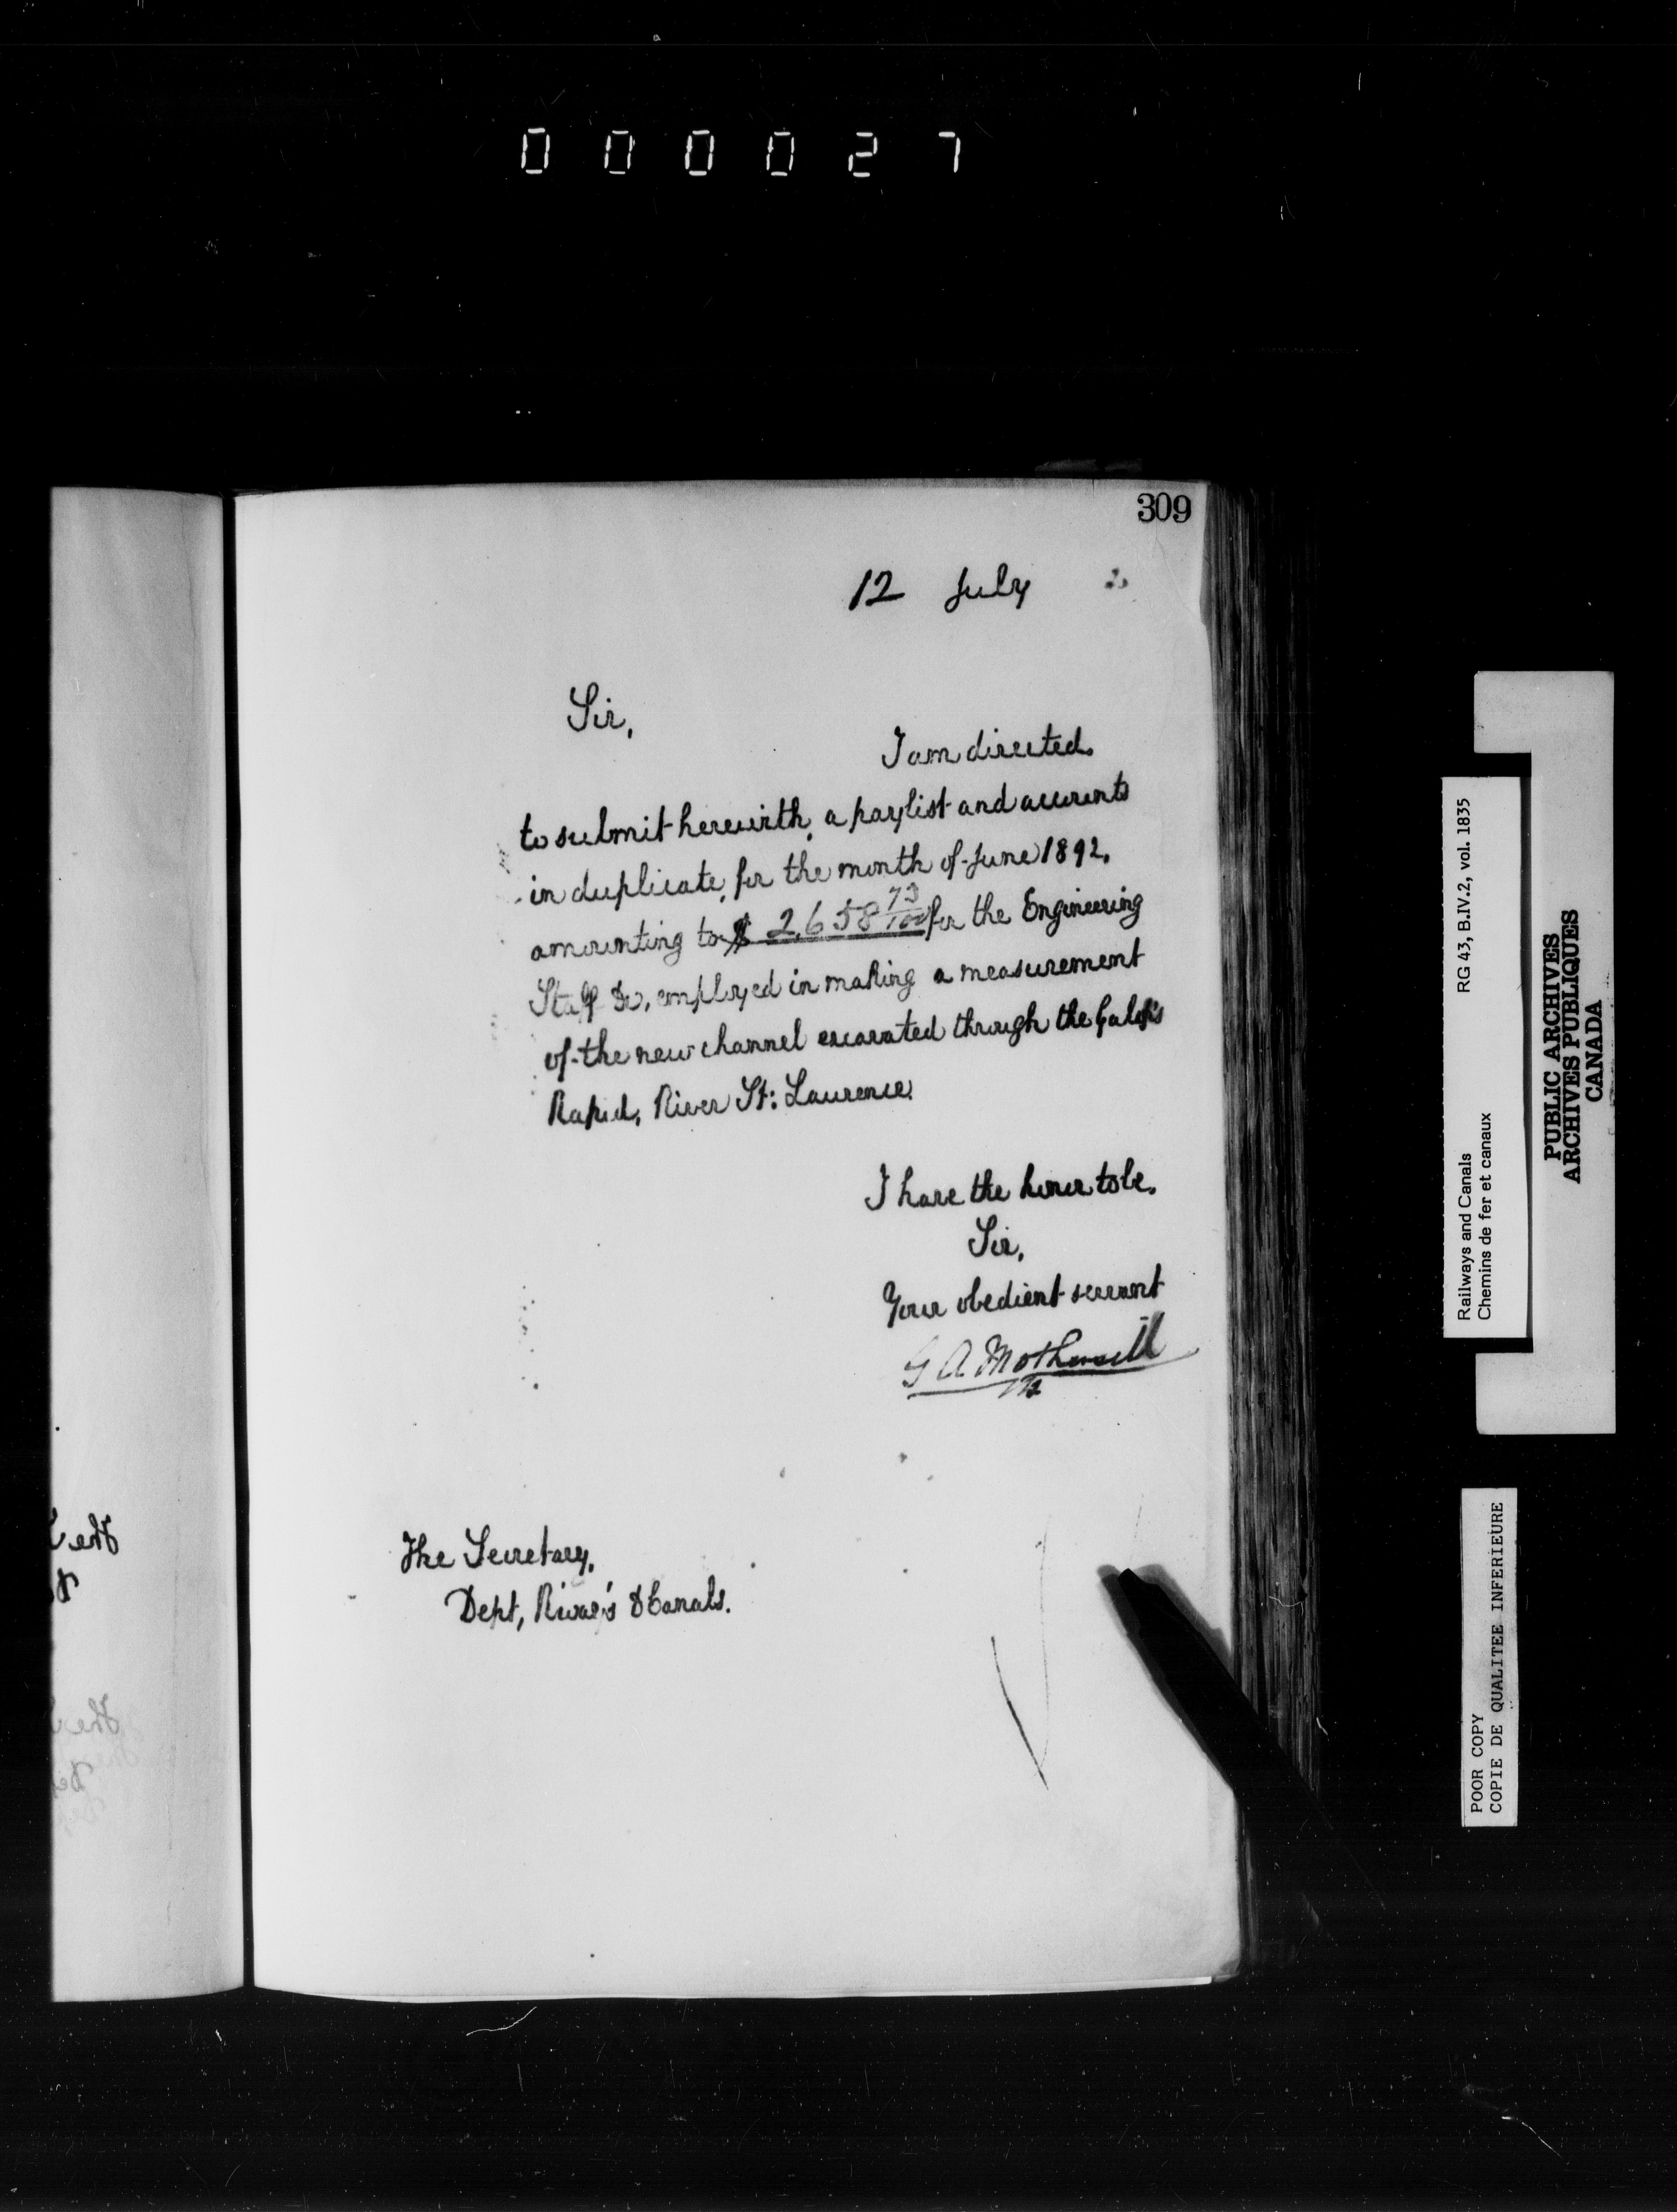 000027
309
12 July 2
Sir,
I am directed
to submit herewith, a paylist and accounts
in duplicate, for the month of June 1892,
amounting to $ 2,658 73/100 for the Engineering
Staff &c, employed in making a measurement
of the new channel excavated through the Galops
Rapid, River St: Laurence.
I have the honor to be,
Sir,
Your obedient servant
G A Mothersill
The Secretary,
Dept, Riway's & Canals.
Railways and Canals RG 43, B.IV.2, vol. 1835
Chemins de fer et canaux
PUBLIC ARCHIVES
ARCHIVES PUBLIQUES
CANADA
POOR COPY
COPIE DE QUALITEE INFERIEURE